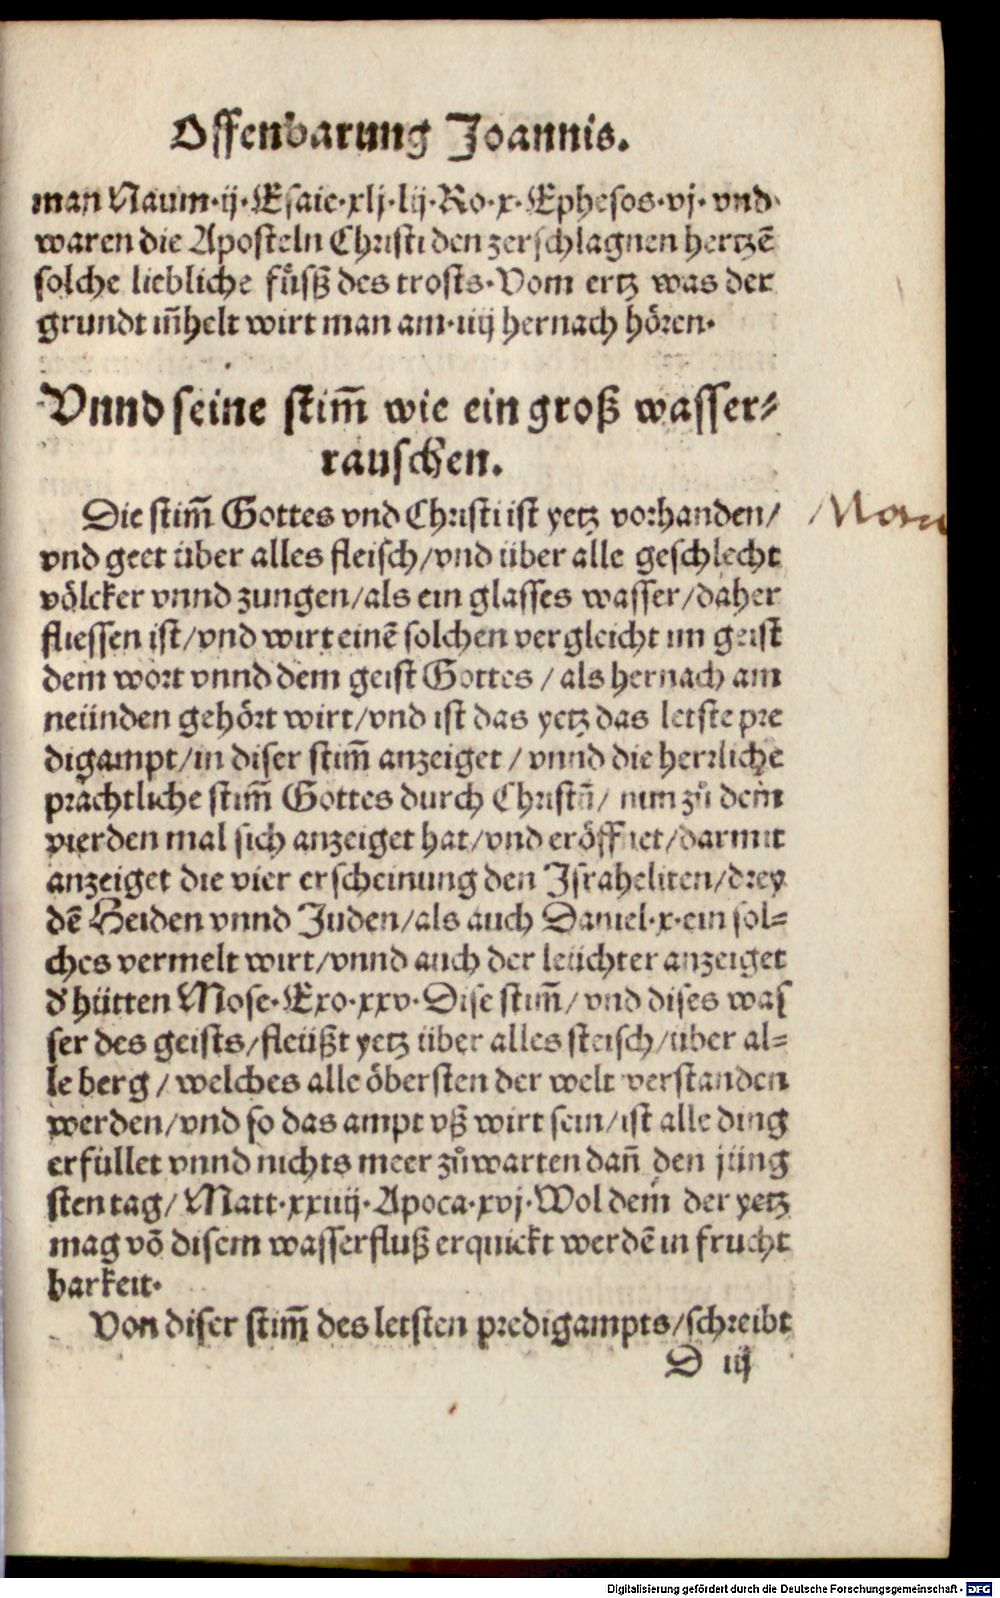 Offenbarung Joannis.
man Naum·ij·Esaie·xlj·lij·Ro·x·Ephesos·vj·vnd
waren die Aposteln Christi den zerschlagnen hertzē
solche liebliche fůsß des trosts·Vom ertz was der
grundt iñhelt wirt man am·iiij hernach hören·
Vnnd seine stim̃ wie ein groß wasser⸗
rauschen.
Die stim̃ Gottes vnd Christi ist yetz vorhanden/
vnd geet über alles fleisch/vnd über alle geschlecht
völcker vnnd zungen/als ein glasses wasser/daher
fliessen ist/vnd wirt einē solchen vergleicht im geist
dem wort vnnd dem geist Gottes/als hernach am
neünden gehört wirt/vnd ist das yetz das letste pre
digampt/in diser stim̃ anzeiget/vnnd die herrliche
prächtliche stim̃ Gottes durch Christū/nun zů dem
vierden mal sich anzeiget hat/vnd eröffnet/darmit
anzeiget die vier erscheinung den Israheliten/drey
dē Heiden vnnd Juden/als auch Daniel·x·ein sol⸗
ches vermelt wirt/vnnd auch der leüchter anzeiget
d' hütten Mose·Exo·xxv·Dise stim̃/vnd dises was
ser des geists/fleüßt yetz über alles fleisch/über al⸗
le berg/welches alle öbersten der welt verstanden
werden/vnd so das ampt vß wirt sein/ist alle ding
erfüllet vnnd nichts meer zůwarten dañ den jüng
sten tag/Matt·xxiiij·Apoca·xvj·Wol dem der yetz
mag vō disem wasserfluß erquickt werdē in frucht
barkeit·
Von diser stim̃ des letsten predigampts/schreibt
D iij
Digitalisierung gefördert durch die Deutsche Forschungsgemeinschaft - DFG